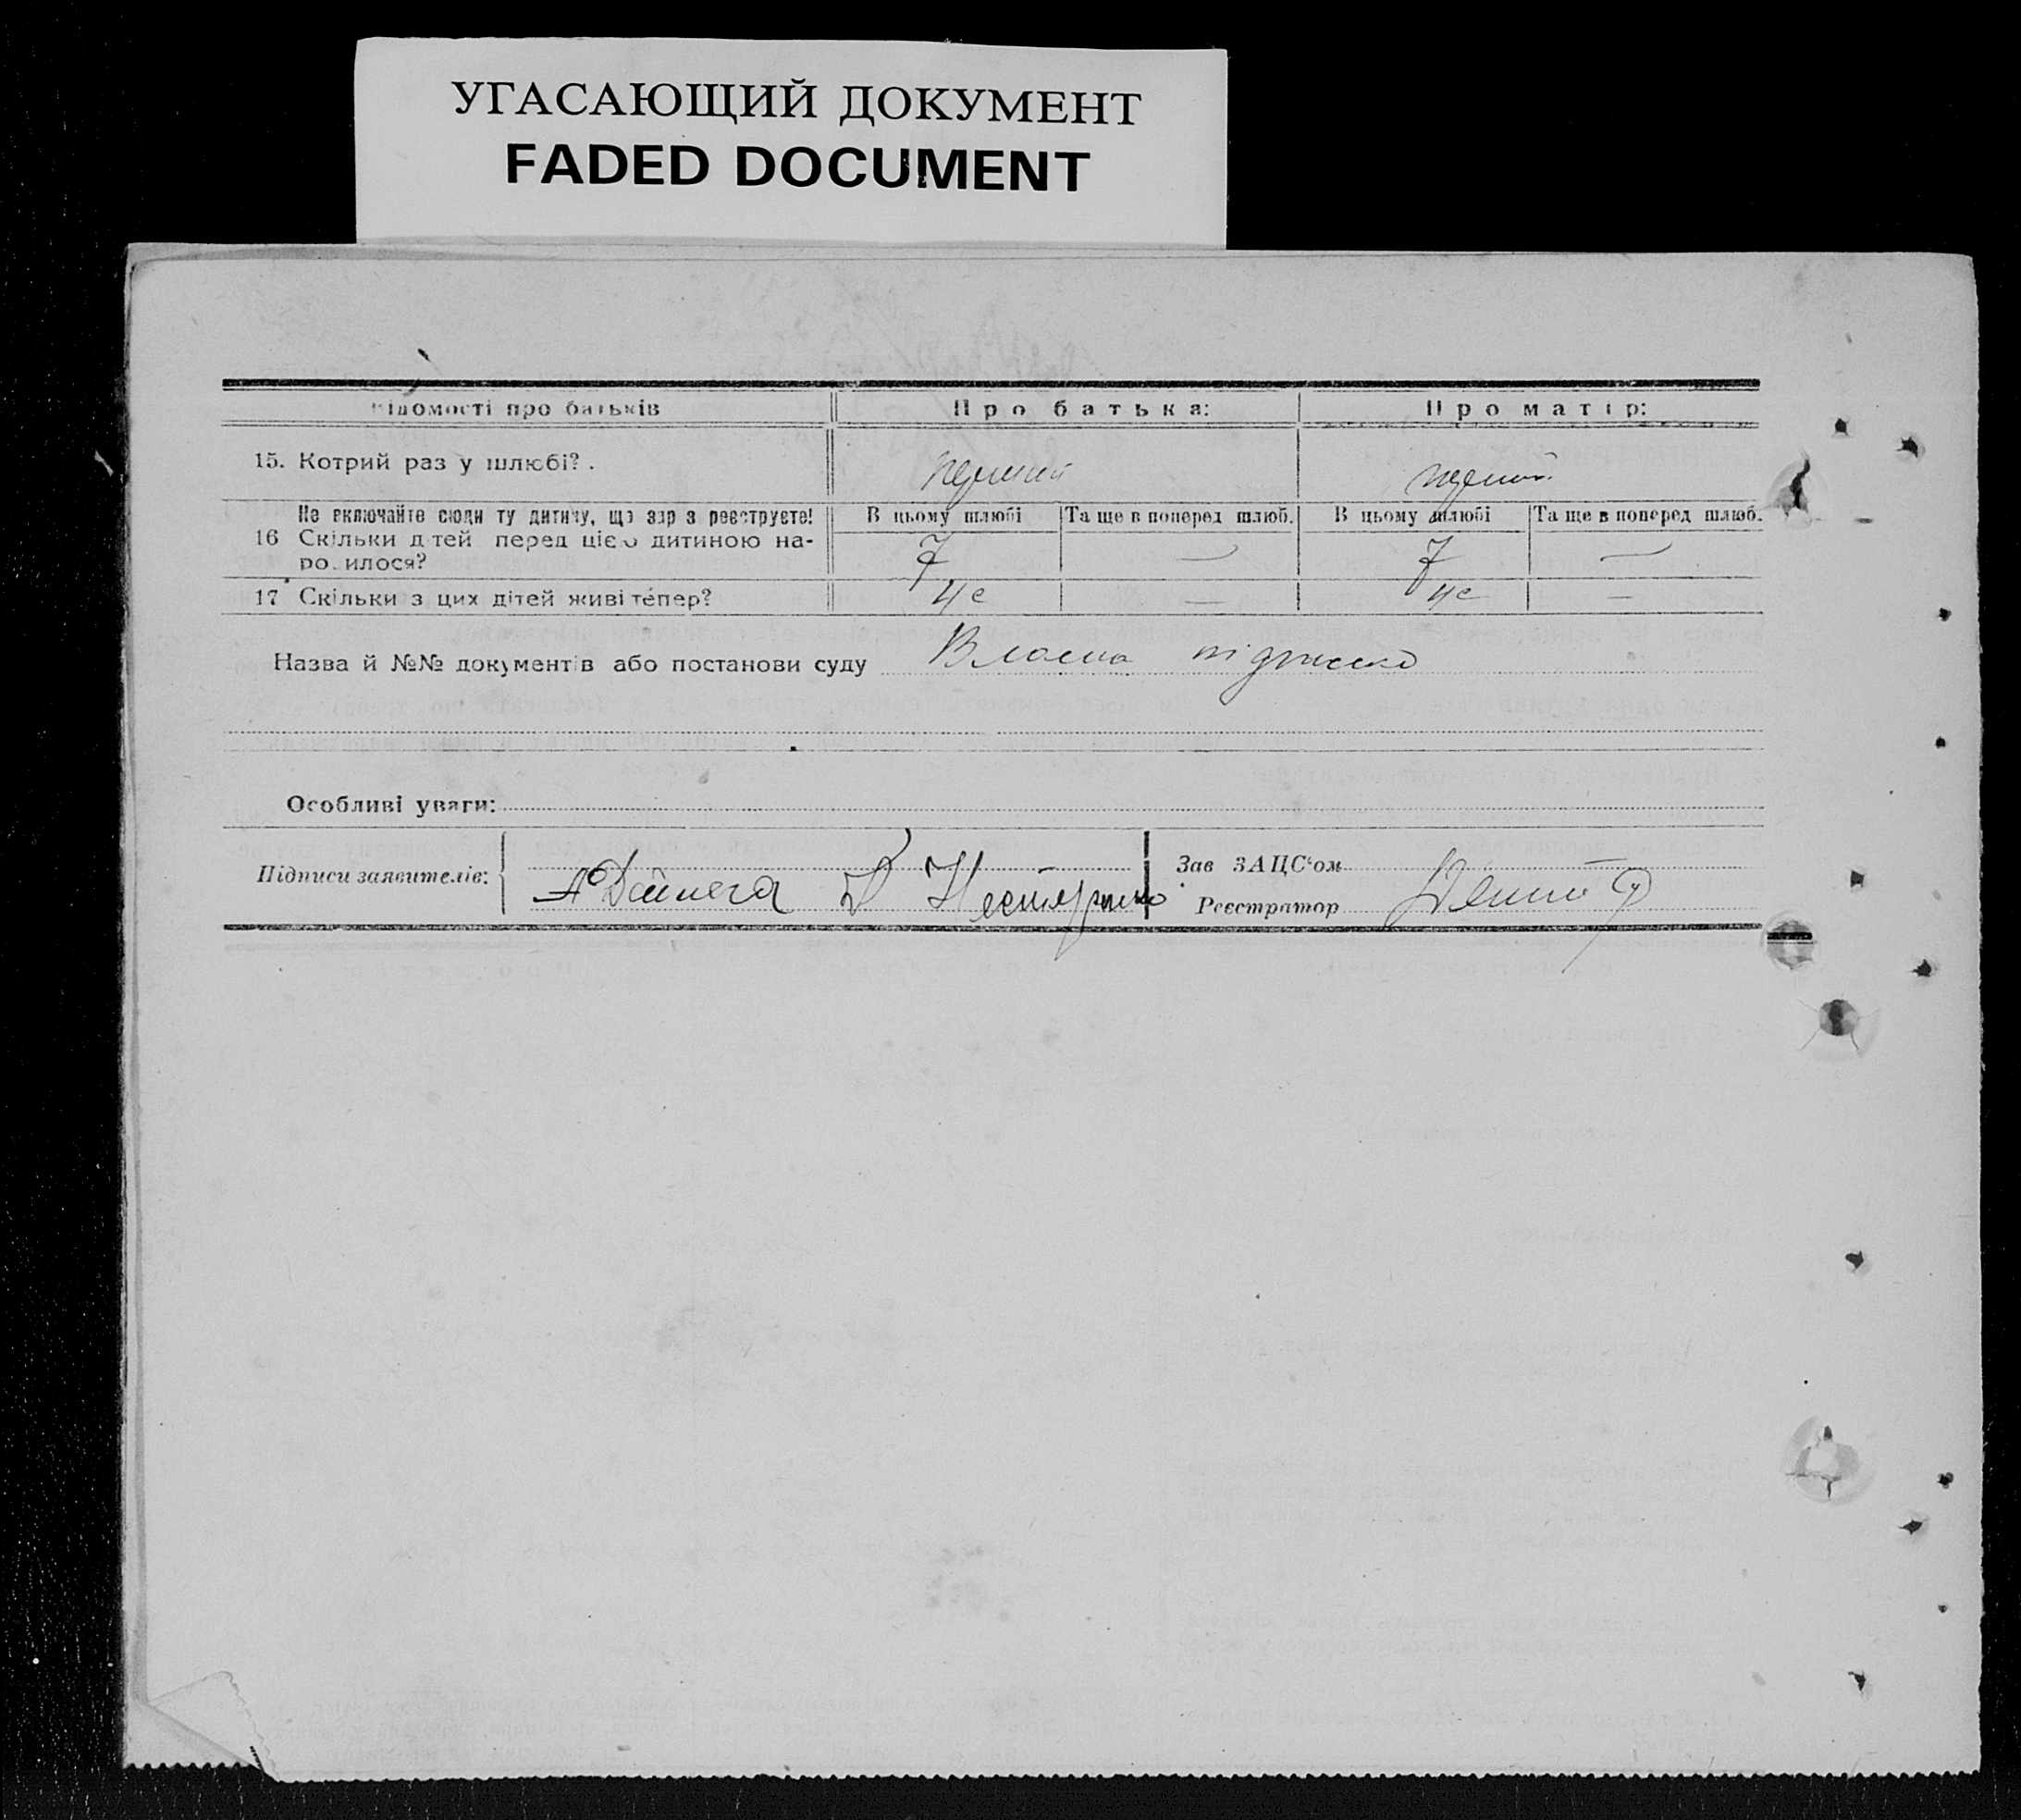 УГАСАЮЩИЙ ДОКУМЕНТ
FADED DOCUMENT
відомості про батьків Про батька: Про матір:
15. Котрий раз у шлюбі? . перший перший
Не включайте сюди ту дитину, що зараз реєструєте! В цьому шлюбі Та ще в поперед шлюб. В цьому шлюбі Та ще в поперед шлюб.
16 Скільки дітей перед цією дитиною на-
родилося? 7 — 7 —
17 Скільки з цих дітей живі тепер? 4е — 4е —
Назва й №№ документів або постанови суду Власна підписка
Особливі уваги:
Підписи заявителів: Нестеренко
Зав ЗАЦС'ом
Реєстратор